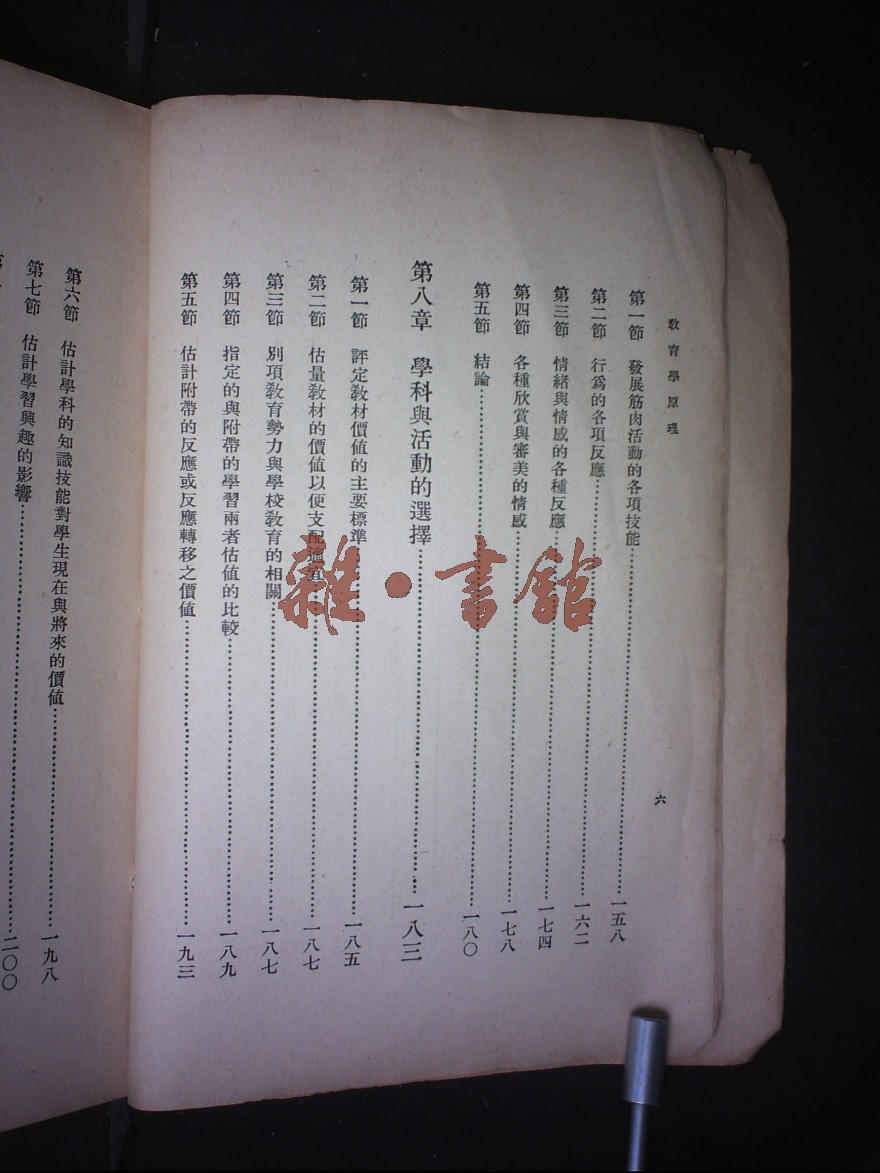 教育學原理
六
第一節 發展筋肉活動的各項技能……一五八
第二節 行爲的各項反應……一六二
第三節 情緒與情感的各種反應……一七四
第四節 各種欣賞與審美的情感……一七八
第五節 結論……一八〇
第八章 學科與活動的選擇……一八三
第一節 評定教材價值的主要標準……一八五
第二節 估量教材的價值以便支配適宜……一八七
第三節 別項教育勢力與學校教育的相關……一八七
第四節 指定的與附帶的學習兩者估值的比較……一八九
第五節 估計附帶的反應或反應轉移之價值……一九三
第六節 估計學科的知識技能對學生現在與將來的價值……一九八
第七節 估計學習興趣的影響……二〇〇
雜·書館